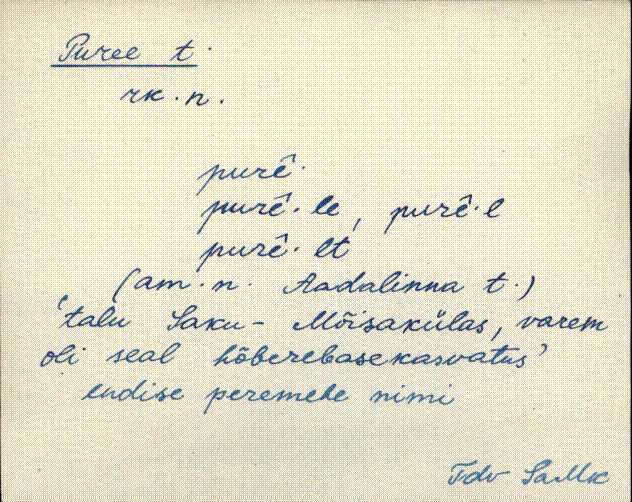 Puree t.
rk.n.
purê·
purê·le, purê·l
purê·lt
(am.n. Aadalinna t.)
'talu Saku-Mõisakülas, varem
oli seal hõberebasekasvatus'
endise peremehe nimi
Tdv SaMk